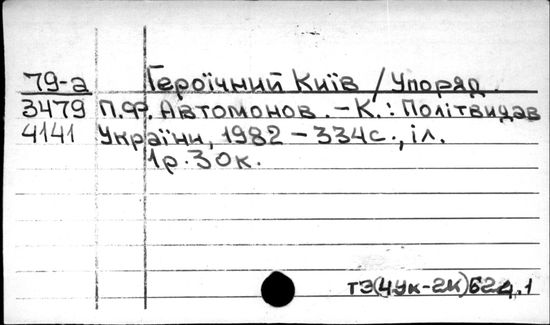 79-а Героїчний Київ / Упоряд.
3479 П.Ф. Автомонов. – К.: Політвидав
4141 України, 1982 – 334с., іл.
1р.30к.
т3(4Ук-2К)622.1